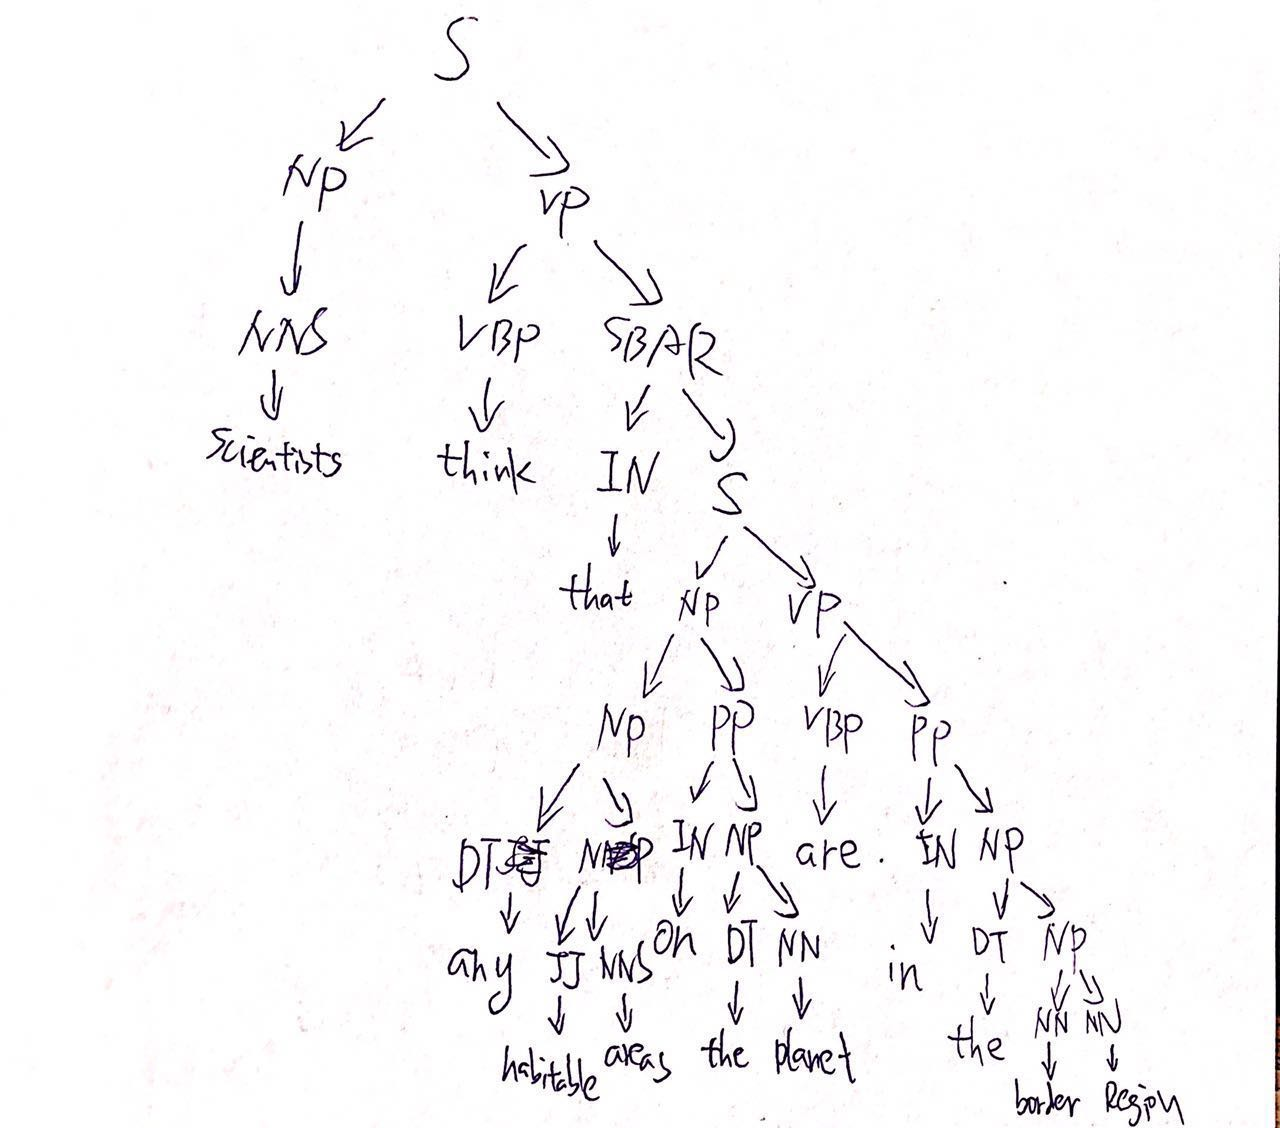 S
NP
VP
NNS VBP SBAR
Scientists think IN S
that NP VP
NP PP VBP PP
DT NP IN NP are. IN NP
any JJ NNS on DT NN in DT NP
habitable areas the planet the NN NN
border Region